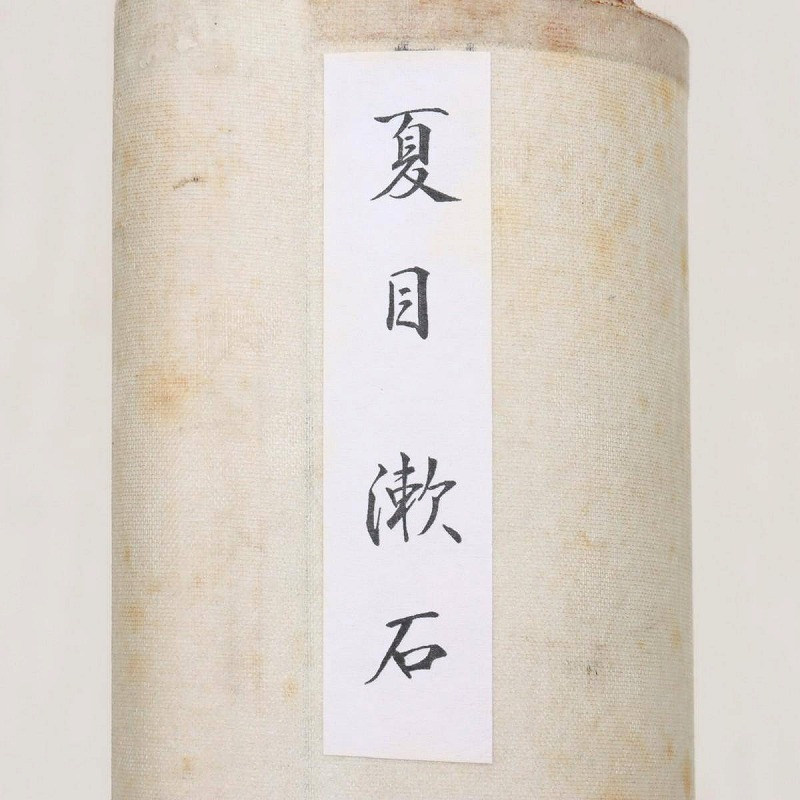 夏目漱石